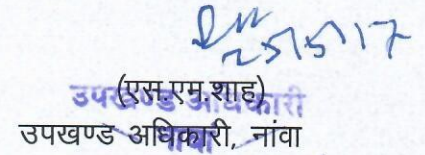 25/5/17
(एस.एम.शाह)
उपखण्ड अधिकारी
उपखण्ड अधिकारी, नांवा